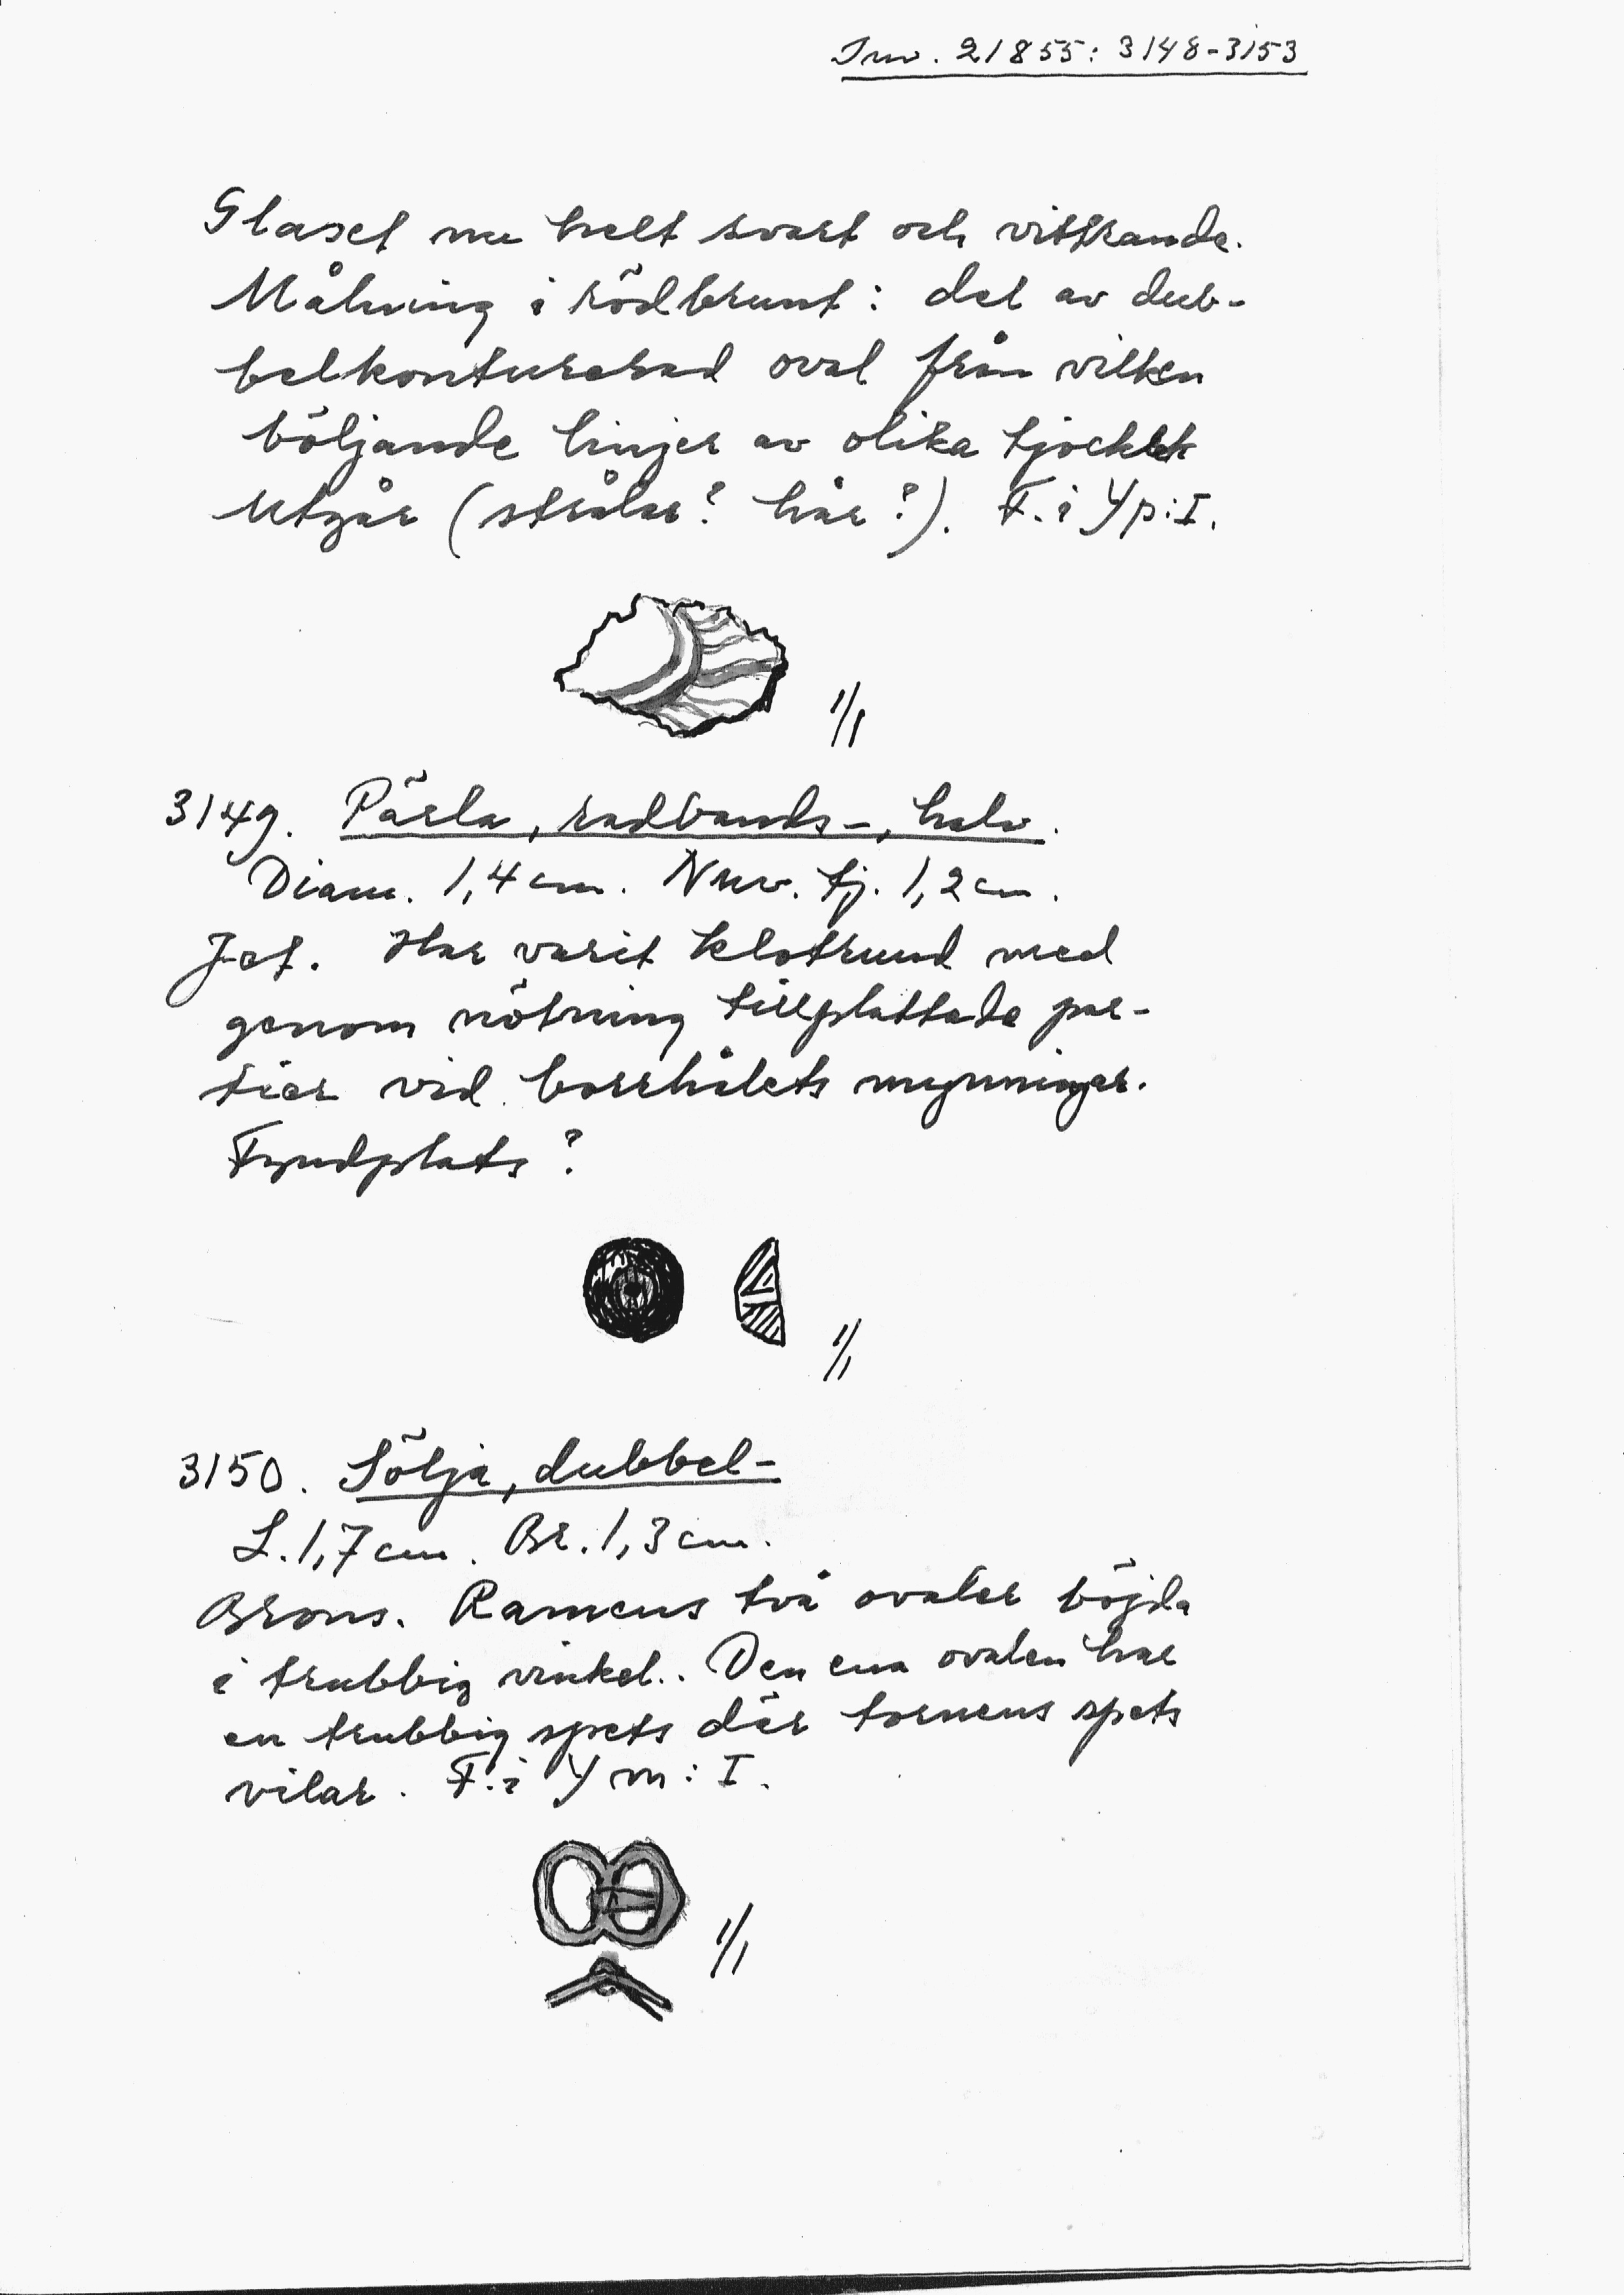 Inv. 21855: 3148-3153
Glaset nu helt svart och vittrande.
Målning i rödbrunt: del av dub-
belkonturerad oval från vilken
böljande linjer av olika tjocklek
utgår (strålar? hår?). F. i Yp:I.
1/1
3149. Pärla, radbands-, halv.
Diam. 1,4 cm. Nuv. tj. 1,2 cm.
Jet. Har varit klotrund med
genom nötning tillplattade par-
tier vid borrhålets mynningar.
Fyndplats?
1/1
3150. Sölja, dubbel-
L. 1,7 cm. Br. 1,3 cm.
Brons. Ramens två ovaler böjda
i trubbig vinkel.. Den ena ovalen har
en trubbig spets där tornens spets
vilar. F. i Ym: I.
1/1